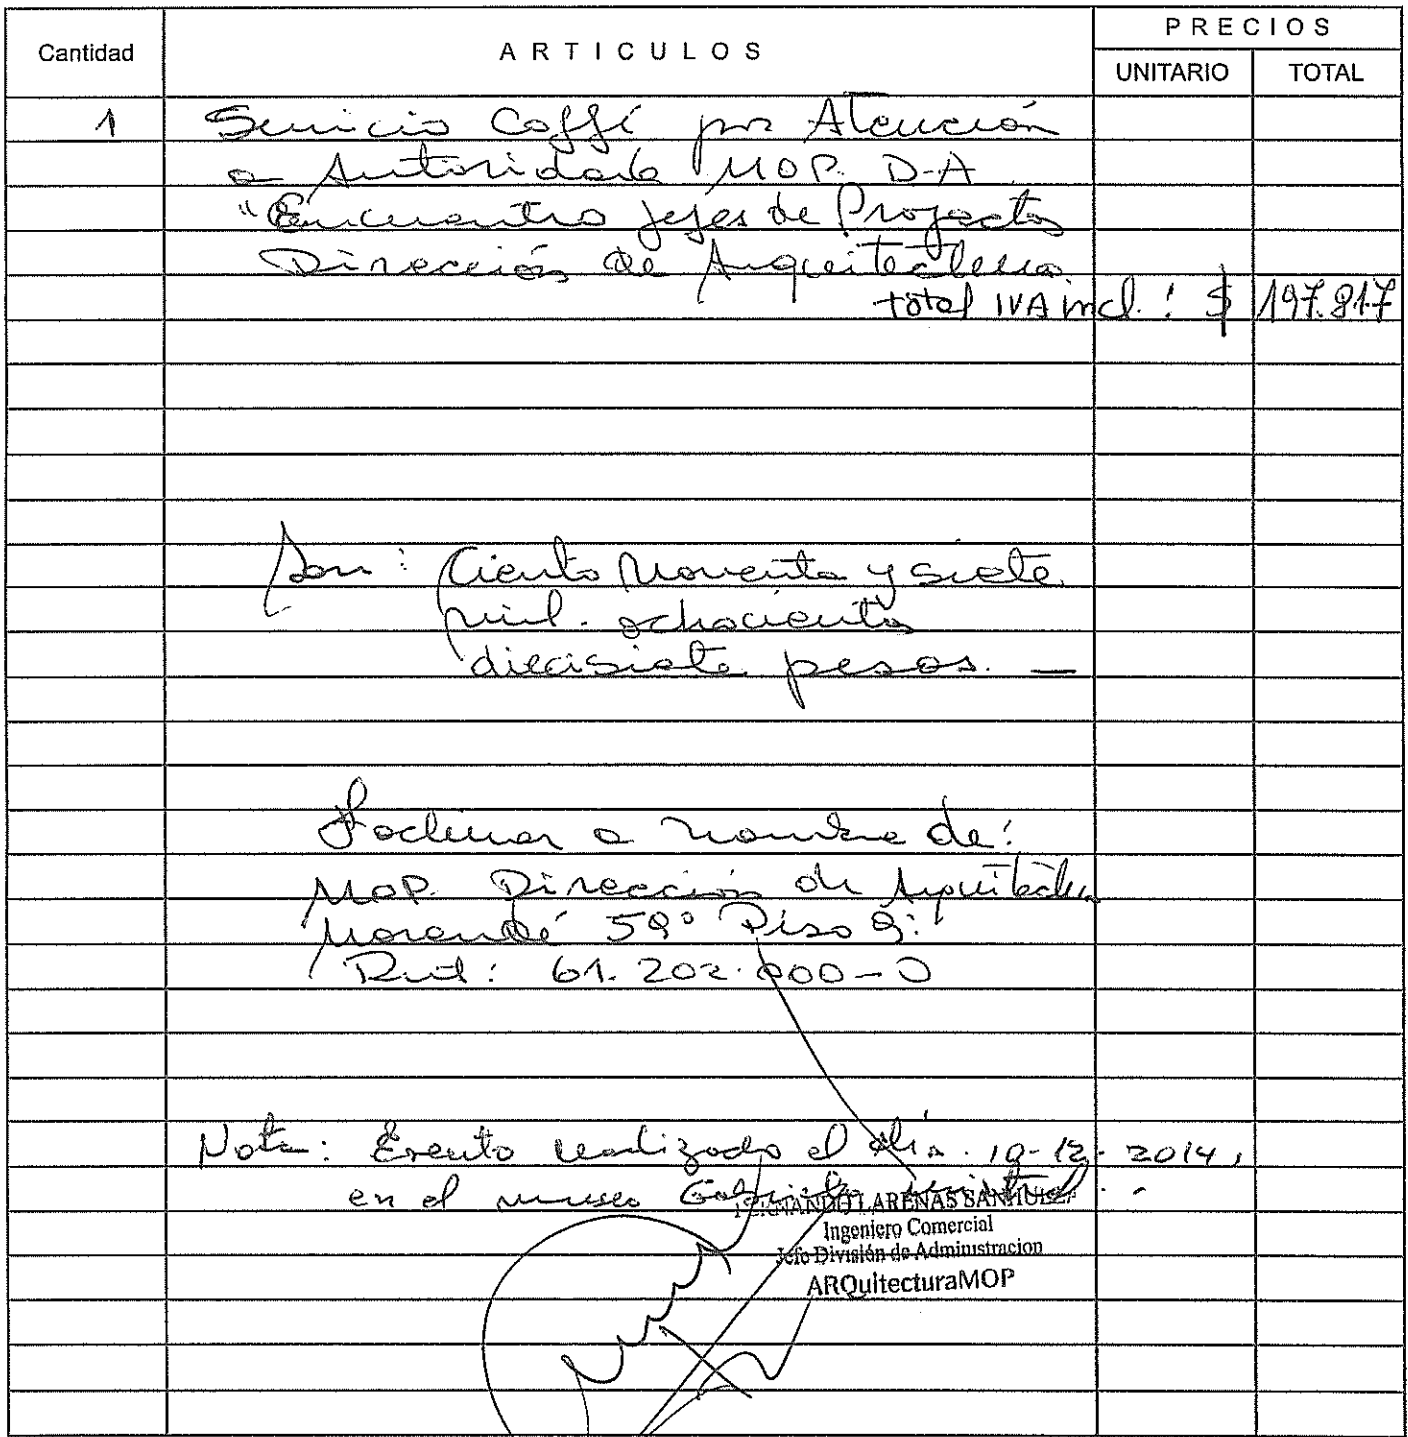 PRECIOS
Cantidad ARTICULOS UNITARIO TOTAL
1 Servicio Coffé por Atención
a Autoridade MOP. D-A
"Encuentro jefes de Proyectos
Dirección de Arquitectura.
total IVA incl.: $ 197.817
Son: Ciento Noventa y siete
mil. ochocientos
diecisiete pesos. —
Facturar a nombre de:
MOP. Dirección de Arquitectura
Morandé 59° Piso 9:
Rut: 61.202.000-0
Nota: Evento realizado el día 10-12-2014,
en el museo Gabriela mistral.-
FERNANDO LARENAS SANHUEZA
Ingeniero Comercial
Jefe División de Administracion
ARQuitecturaMOP